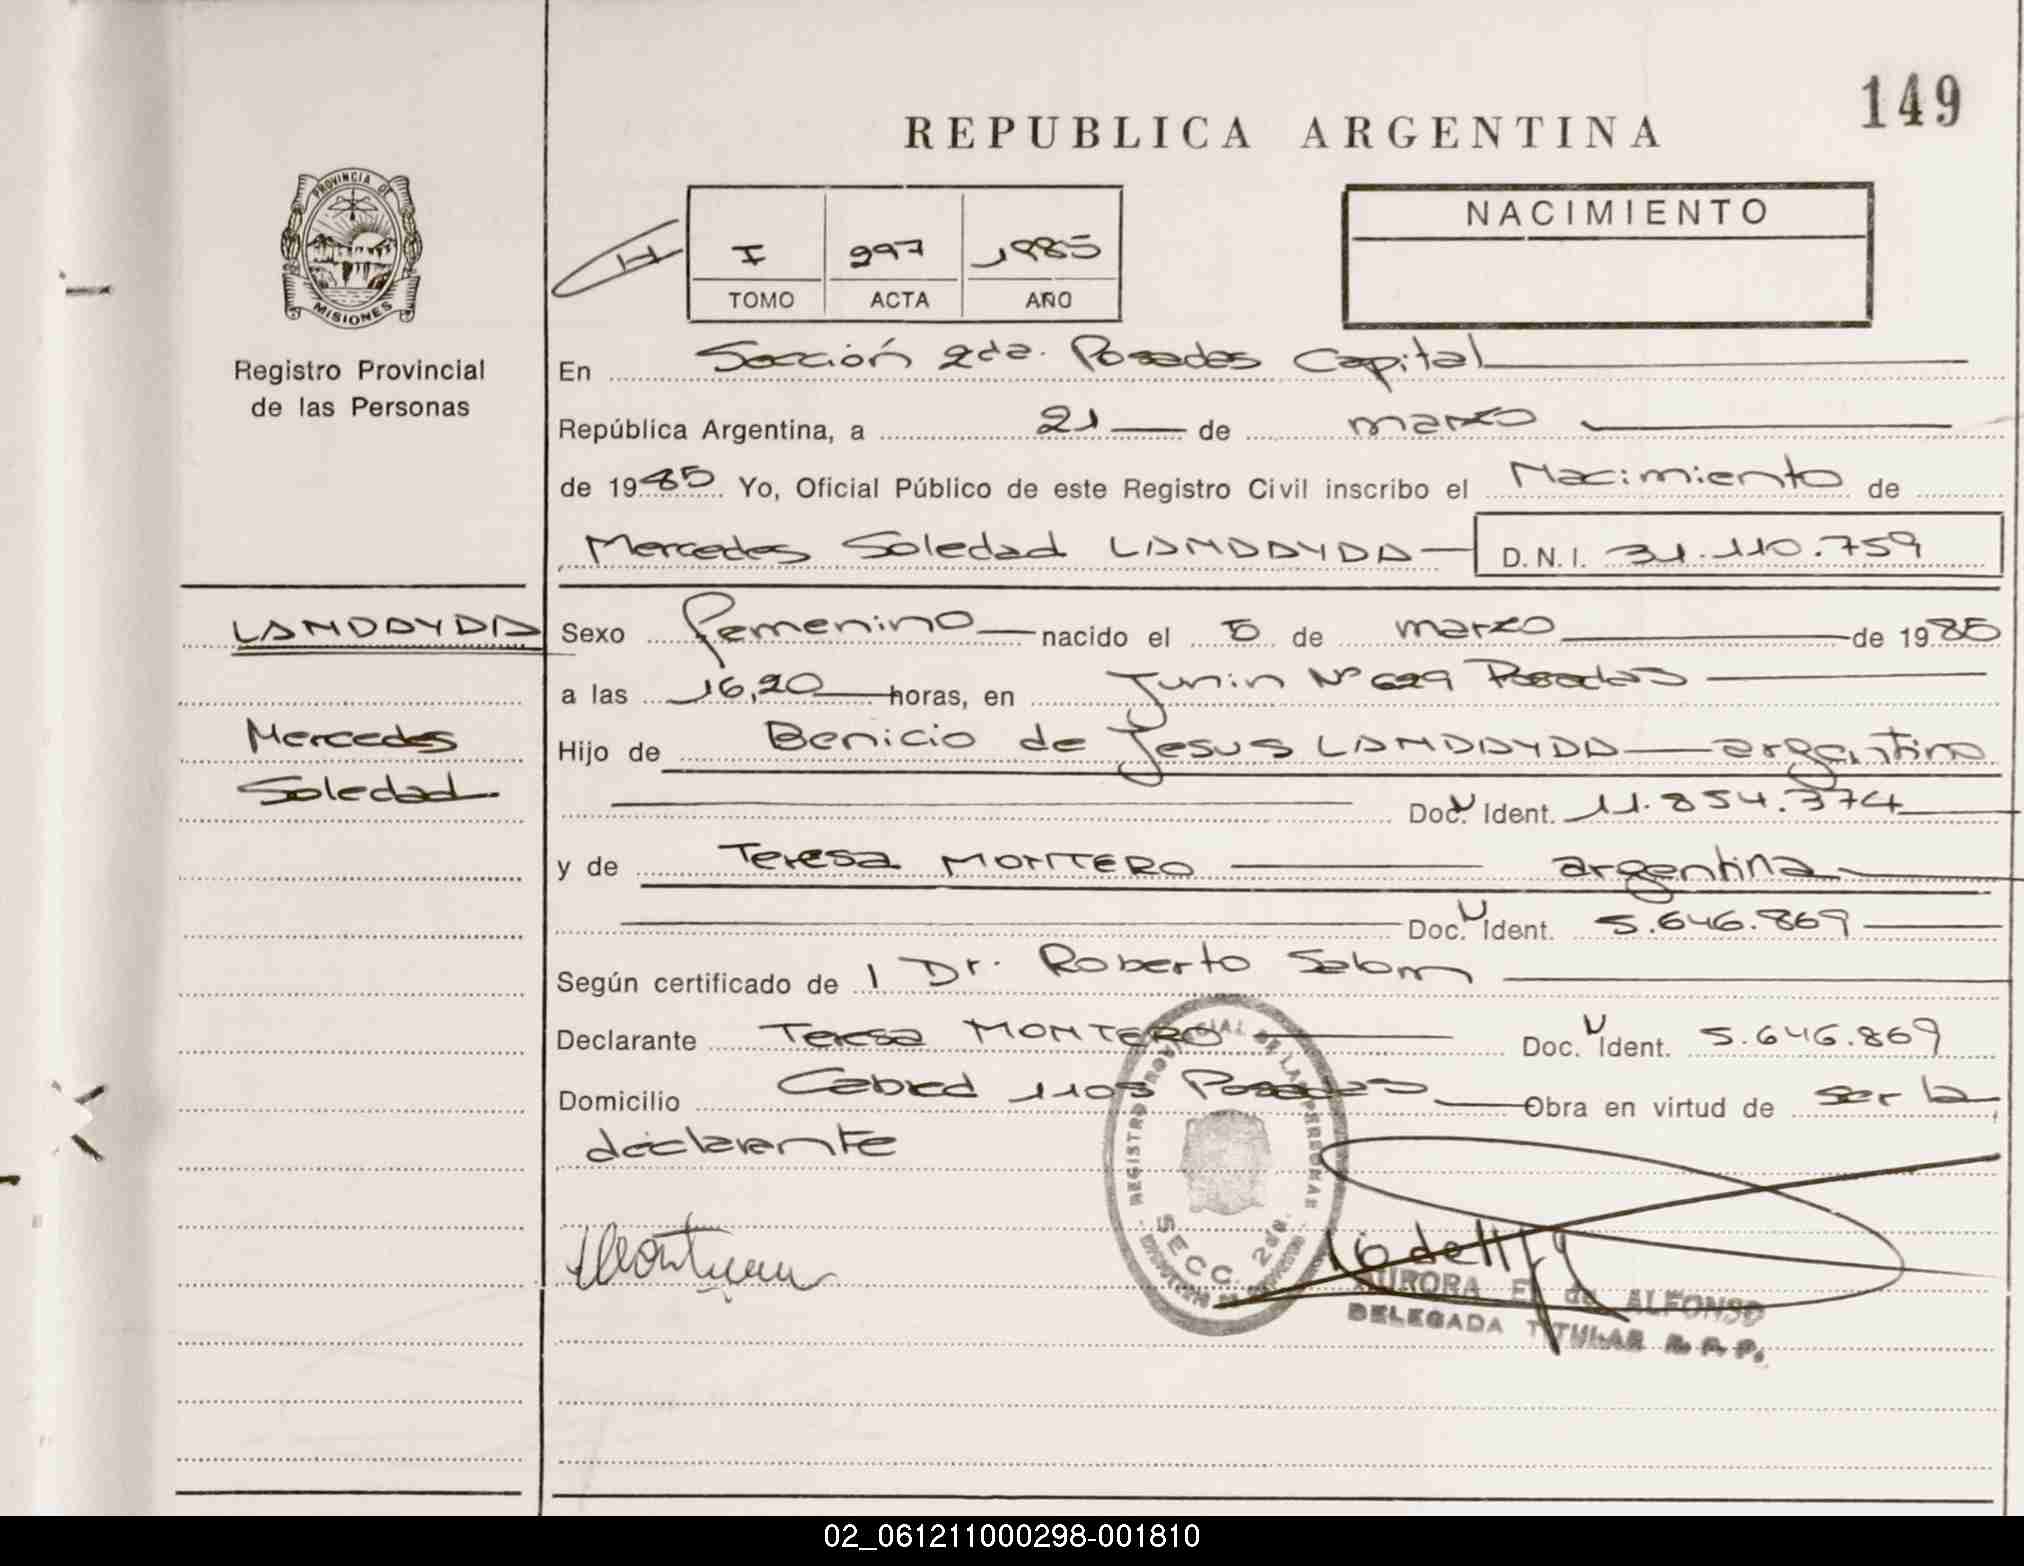 149
REPUBLICA ARGENTINA
PROVINCIA DE
MISIONES
Registro Provincial
de las Personas
NACIMIENTO
I 297 1985
TOMO ACTA AÑO
En Sección 2da. Posadas Capital
República Argentina, a 21 de marzo
de 1985 Yo, Oficial Público de este Registro Civil inscribo el Nacimiento de
Mercedes Soledad LANDAYDA D.N.I. 31.110.759
LANDAYDA
Mercedes
Soledad
Sexo femenino nacido el 5 de marzo de 1985
a las 16,20 horas, en Junin Nº 629 Posadas
Hijo de Benicio de Jesus LANDAYDA argentino
Doc. Ident. 11.854.374
y de Teresa MONTERO argentina
Doc. Ident. 5.646.869
Según certificado de 1 Dr. Roberto
Declarante Teresa MONTERO Doc. Ident. 5.646.869
Domicilio Cabred 1105 Posadas Obra en virtud de ser la
declarante
REGISTRO PROVINCIAL DE LAS PERSONAS
SECC. 2da.
AURORA de ALFONSO
DELEGADA TITULAR R. P. P.
02_061211000298-001810